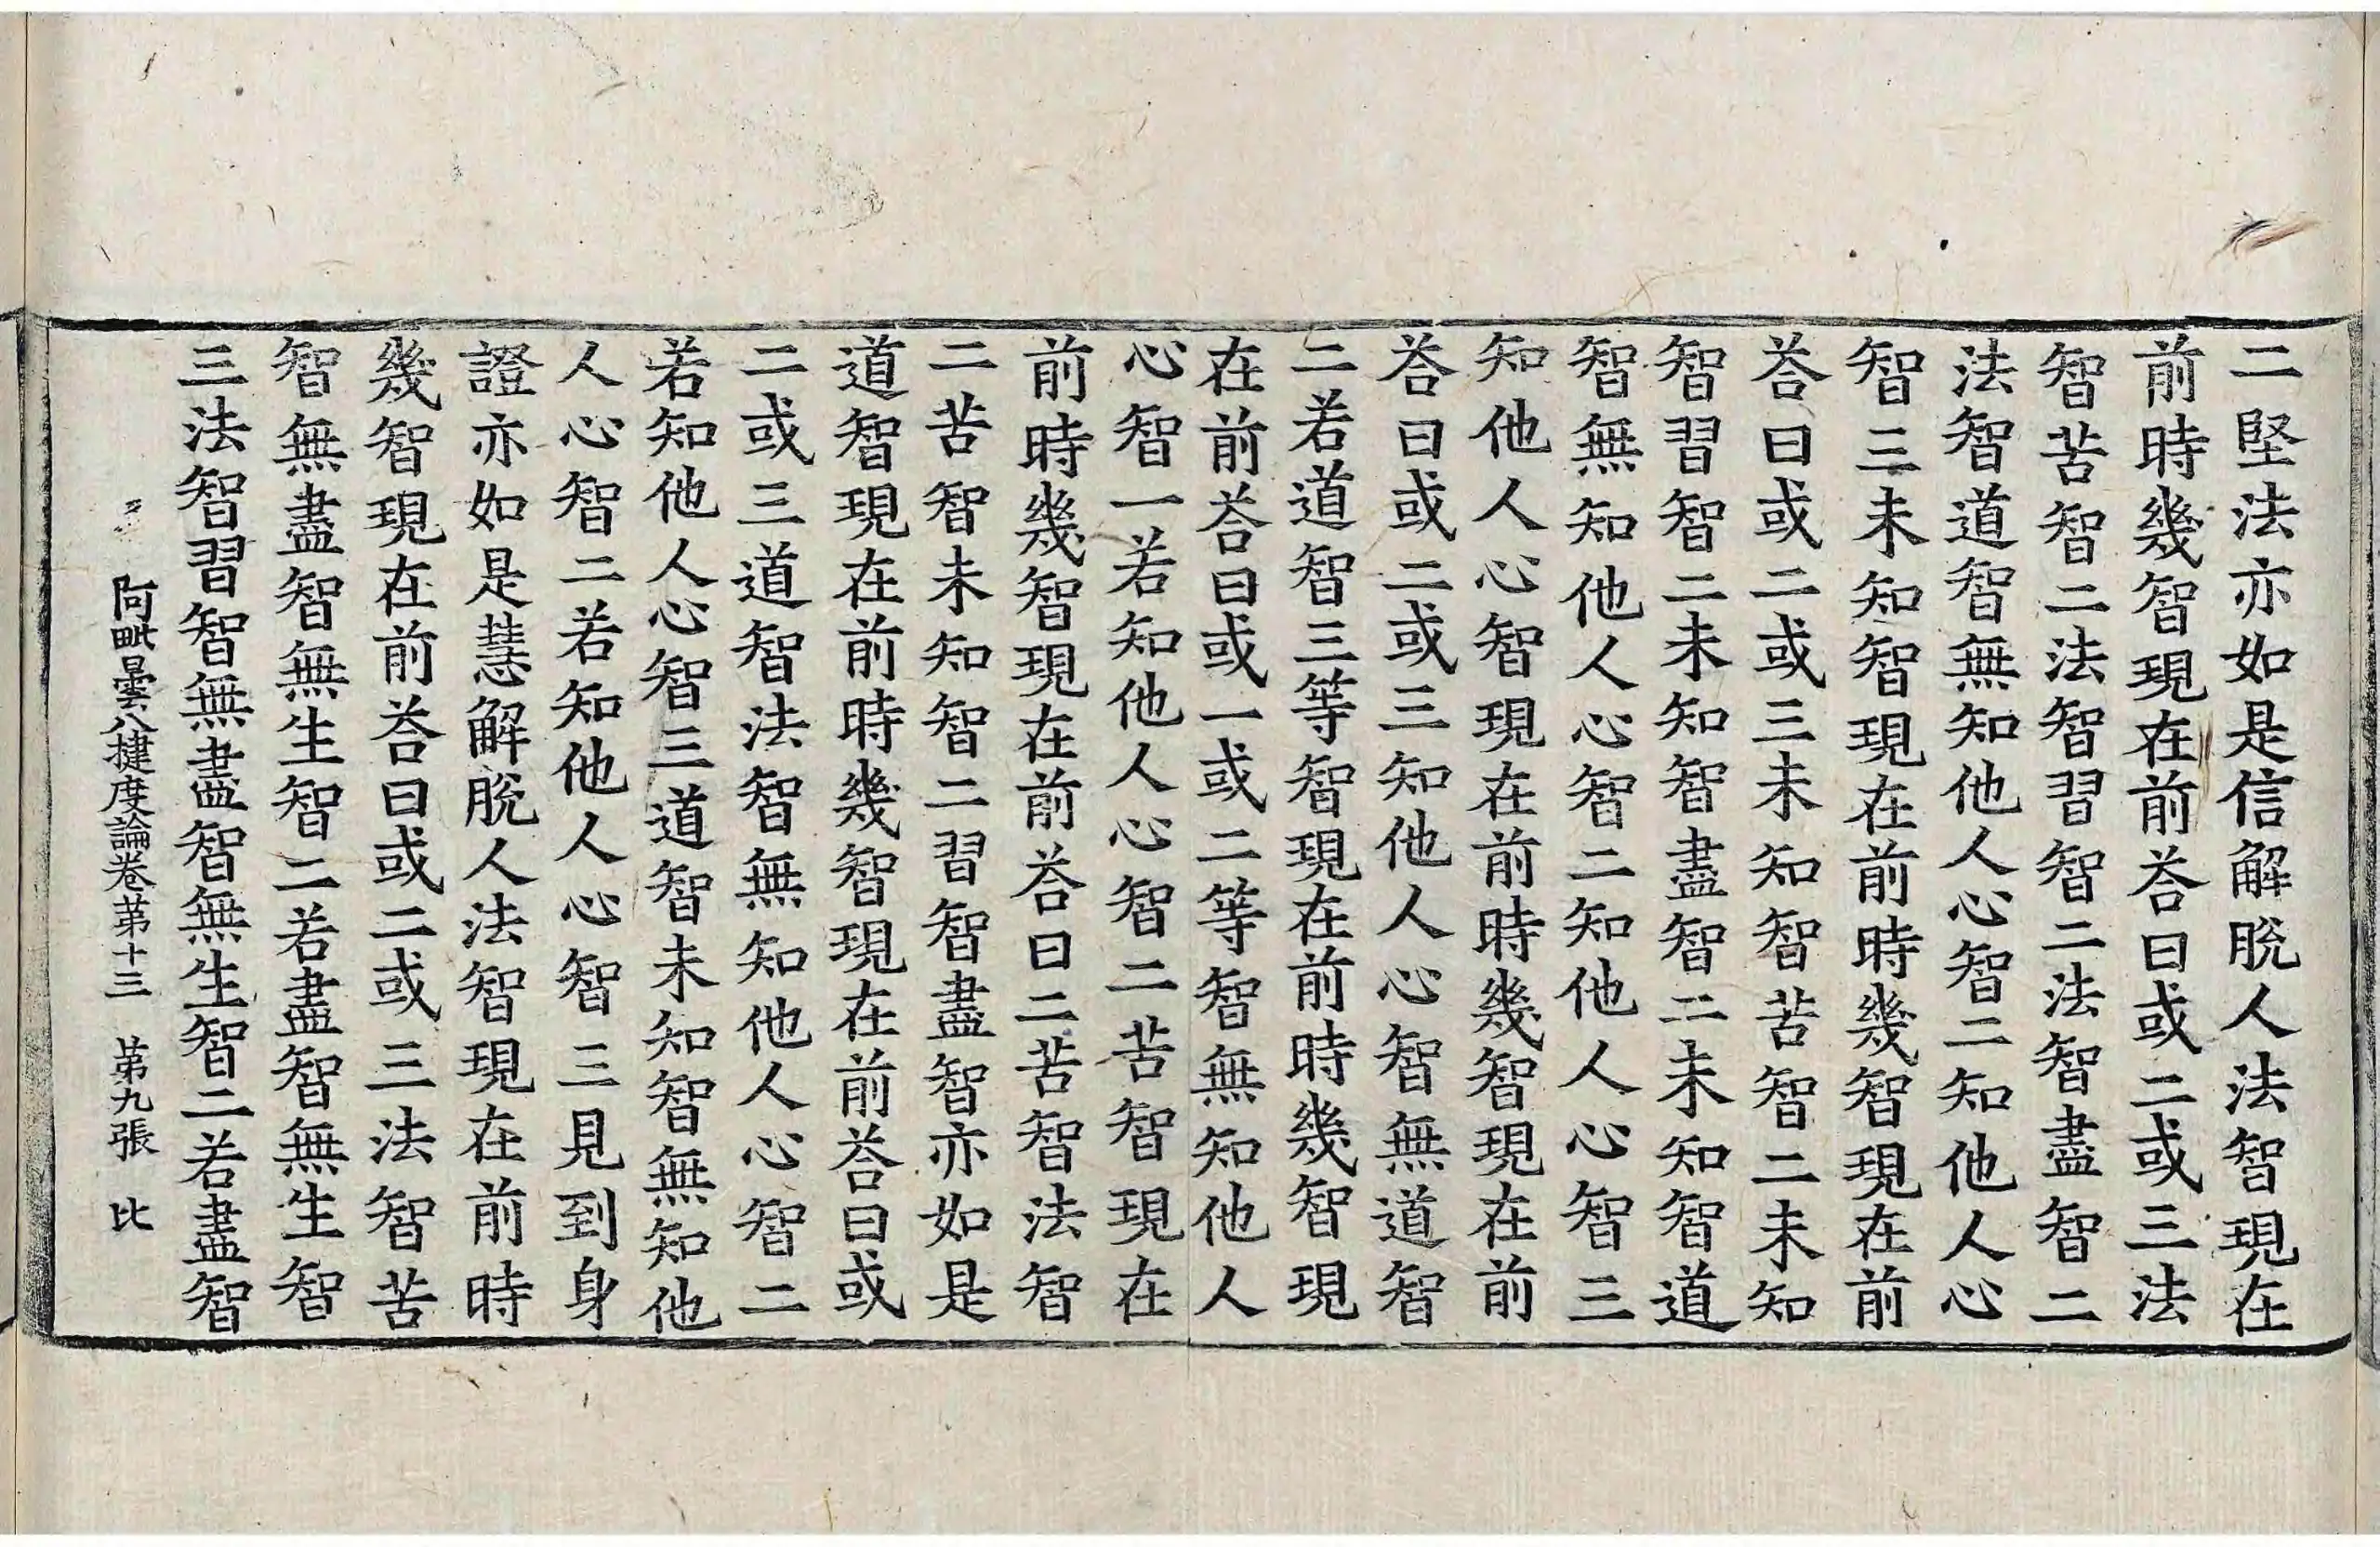 二堅法亦如是信解脫人法智現在
前時幾智現在前荅曰或二或三法
智苦智二法智習智二法智盡智二
法智道智無知他人心智二知他人心
智三未知智現在前時幾智現在前
荅曰或二或三未知智苦智二未知
智習智二未知智盡智二未知智道
智無知他人心智二知他人心智三
知他人心智現在前時幾智現在前
荅曰或二或三知他人心智無道智
二若道智三等智現在前時幾智現
在前荅曰或一或二等智無知他人
心智一若知他人心智二苦智現在
前時幾智現在前荅曰二苦智法智
二苦智未知智二習智盡智亦如是
道智現在前時幾智現在前荅曰或
二或三道智法智無知他人心智二
若知他人心智三道智未知智無知他
人心智二若知他人心智三見到身
證亦如是慧解脫人法智現在前時
幾智現在前荅曰或二或三法智苦
智無盡智無生智二若盡智無生智
三法智習智無盡智無生智二若盡智
阿毗曇八揵度論卷苐十三　苐九張　比